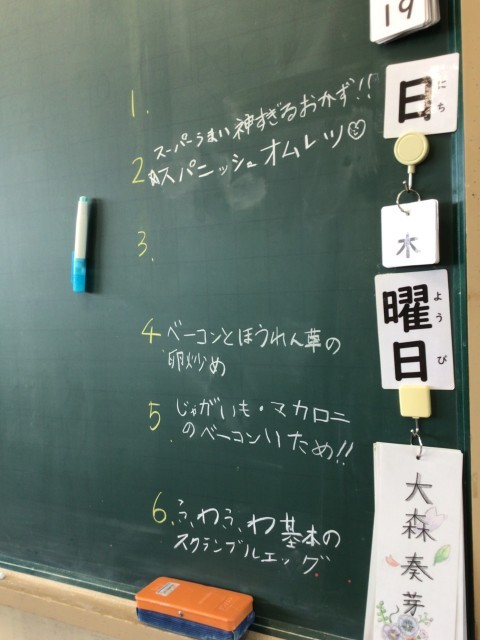 19
日
にち
1.
スーパーうまい神すぎるおかず!!
2 スパニッシュオムレツ
木
3.
曜日
ようび
4 ベーコンとほうれん草の
卵炒め
5. じゃがいも・マカロニ
のベーコンいため!!
6. ふわふわ基本の
スクランブルエッグ
大森奏芽